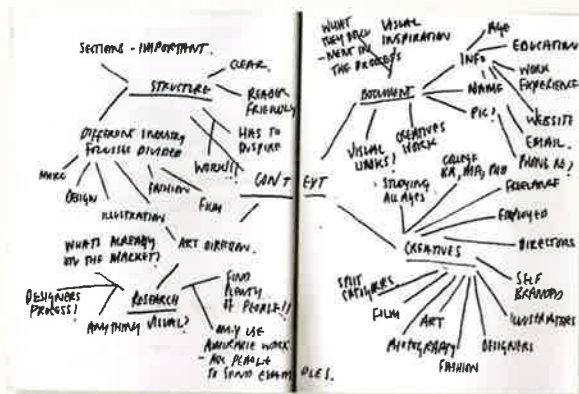 SECTIONS - IMPORTANT.
STRUCTURE
CLEAR.
READER
FRIENDLY
HAS TO
INSPIRE
WORK!!!
DIFFERENT INDUSTRY
DIVIDED
DESIGN
ILLUSTRATION
FASHION
FILM
ART DIRECTION.
CONTEXT
WHATS ALREADY
ON THE MARKET?
DESIGNERS
PROCESS!
RESEARCH
ANYTHING VISUAL?
FIND
PLENTY
OF PEOPLE!!
ONLY USE
WORK
PEOPLE
TO SEND EXAMPLES.
WHAT
THEY
IN
THE PROCESS
VISUAL
INSPIRATION
DOCUMENT
VISUAL
LINKS?
CREATIVES
WORK
INFO
AGE
EDUCATION
WORK
EXPERIENCE
NAME
PIC?
WEBSITE
EMAIL.
PHONE NO?
COLLEGE
BA, MA, PHD
STUDYING
ALL AGES
CREATIVES
FREELANCE
EMPLOYED
DIRECTORS
SELF
BRANDED
ILLUSTRATORS
DESIGNERS
FASHION
ART
PHOTOGRAPHY
FILM
SPLIT
CATEGORIES